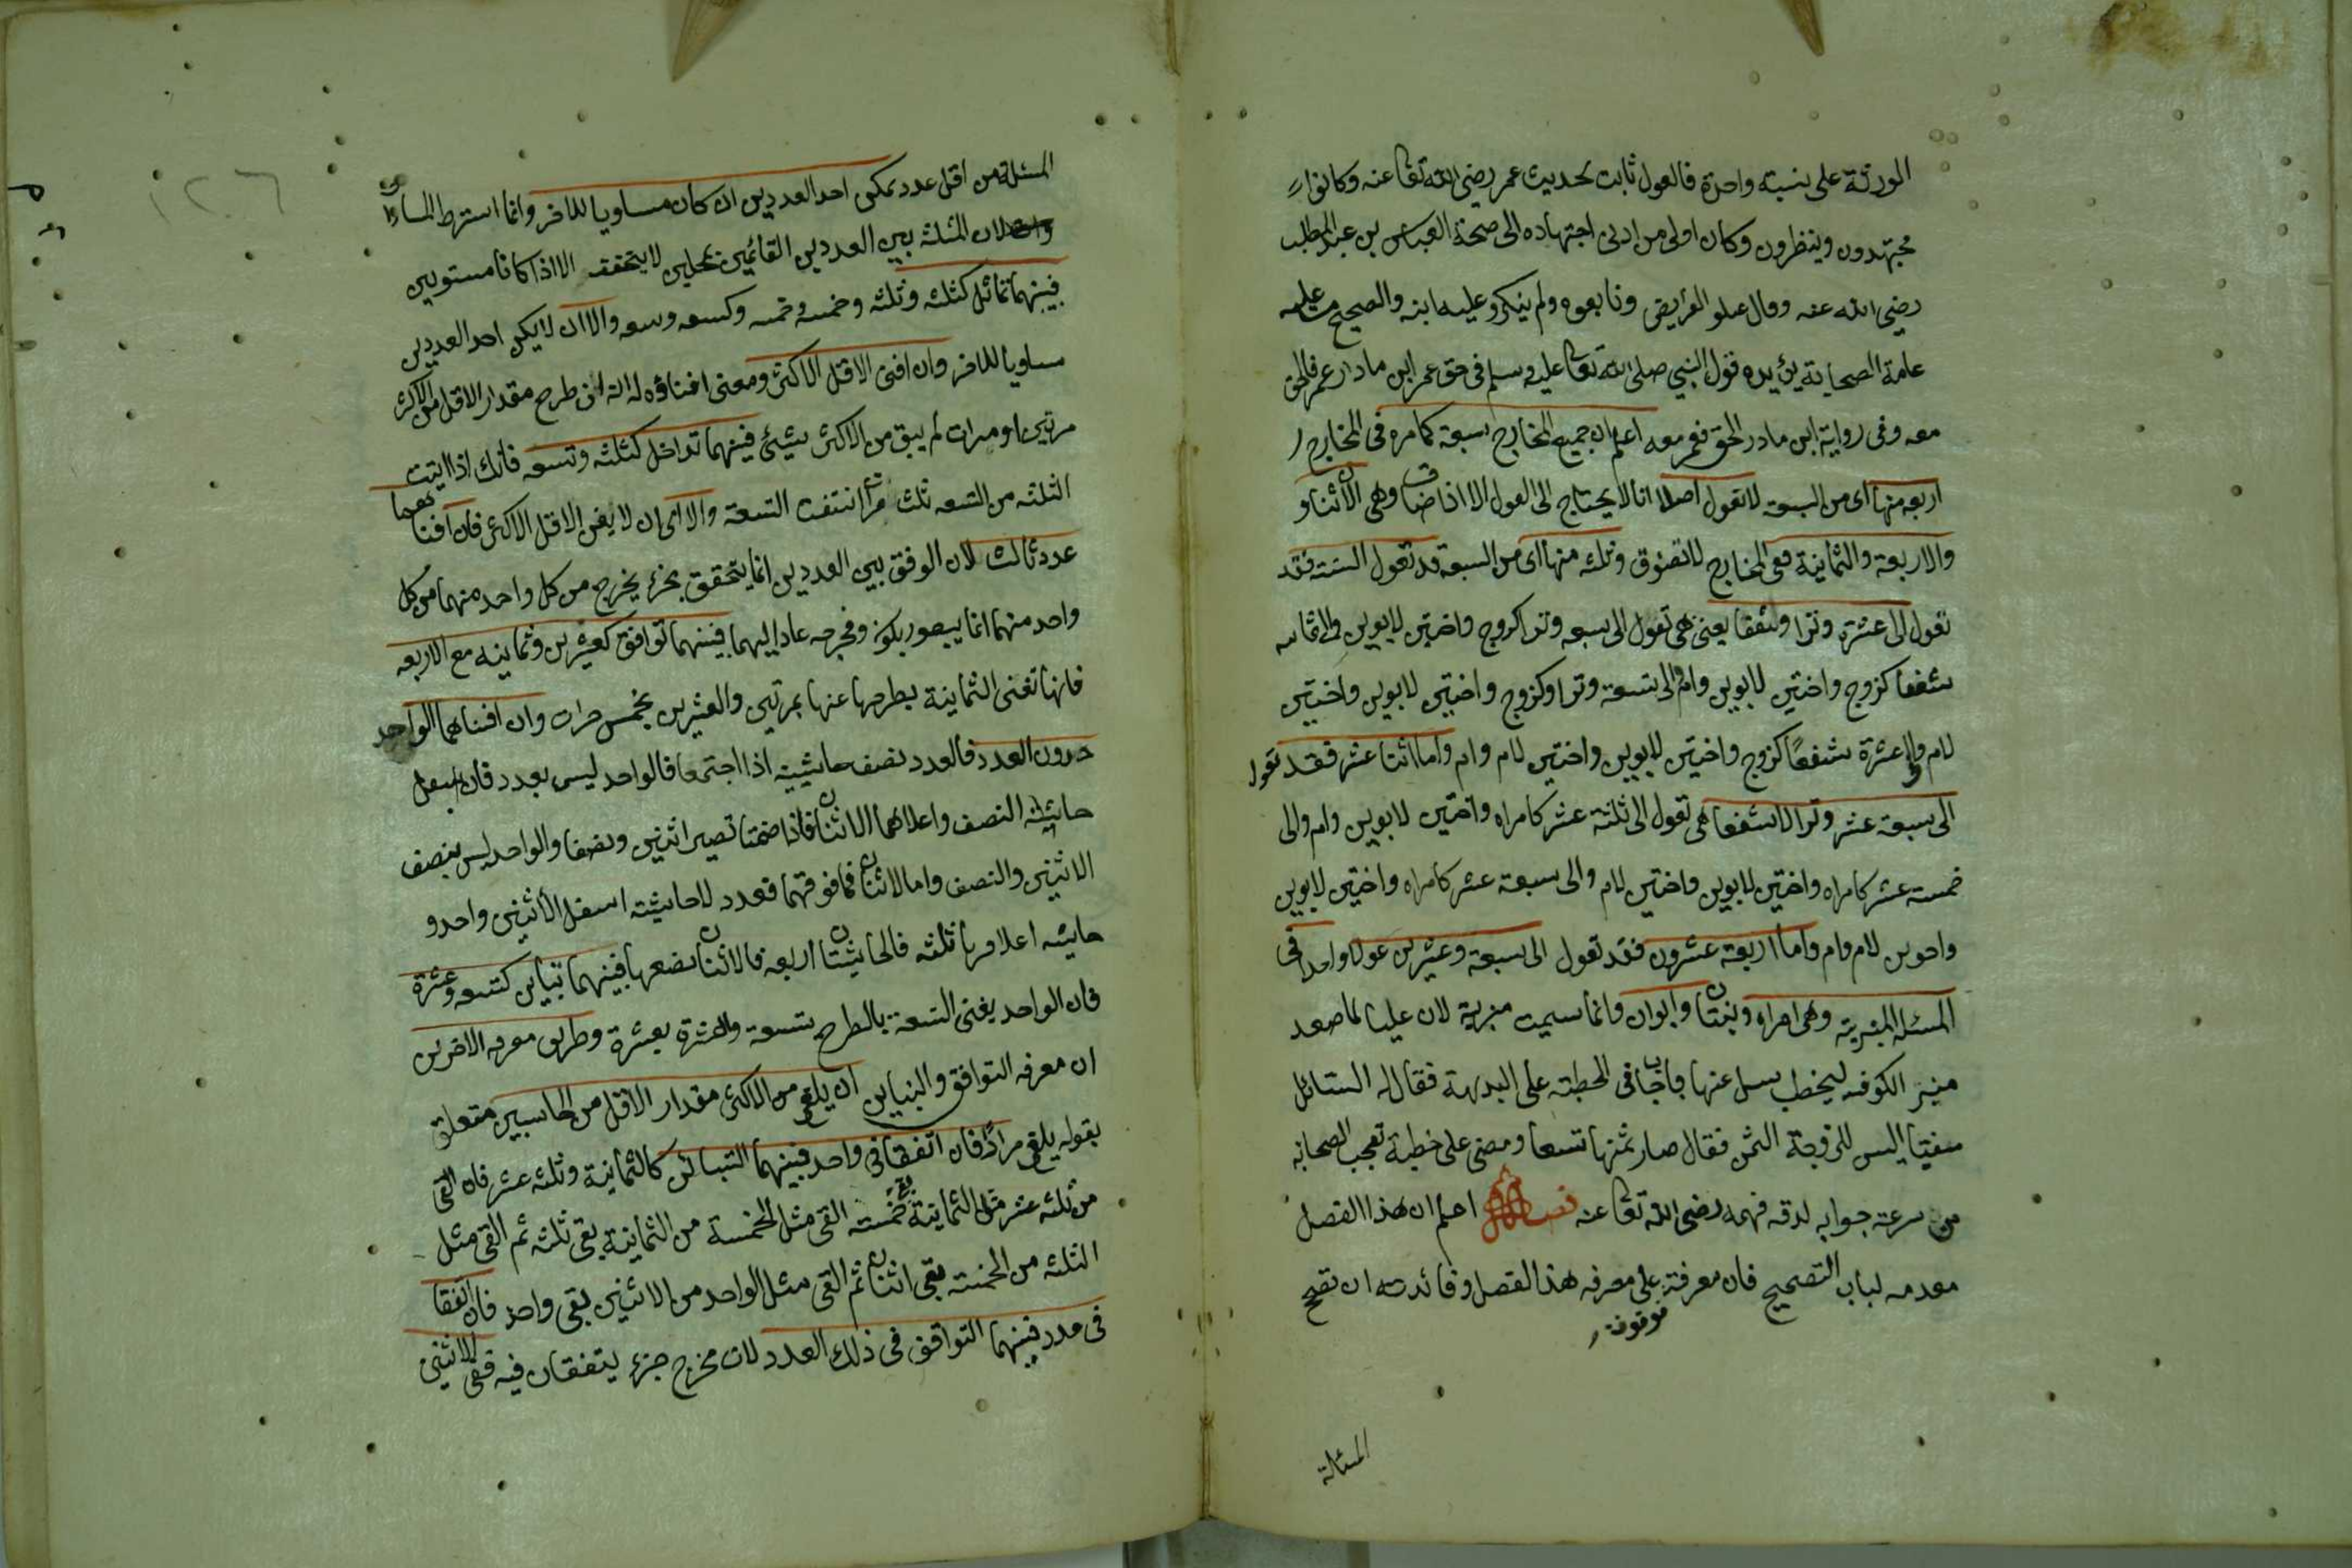 الورثة على نسبته واحدة فالعول ثابت بحديث عمر رضى الله تعا عنه وكانوا
مجتهدون وينظرون وكان اولى من ادنى اجتهاده الى صحة العباس بن عبد المطلب
رضى الله عنه وقال عيلو الفرايض وتابعوه ولم ينكرو عليه ابنه والصحيح ما عليه
عامة الصحابة يئيده قول النبى صلى الله تعا عليه وسلم فى حق عمر اين ما دار عمر فالحق
معه وفى رواية اين ما در الحق فعمر معه اعلم ان جميع المخارج سبعة كما مره فى المخارج
اربعه منها اى من السبعة لا تعول اصلا انا لا يحتاج الى العول الا اذا ضاق وهى الاثنان و
والاربعة والثمانية ففى المخارج لا تضوق وثلثه منها اى من السبعة قد تعول الستة فقد
تعول الى عشرة وترا وشفعا يعنى هى تعول الى سبعه وترا كزوج واختين لابوين والى ثمانيه
شفعا كزوج واختين لابوين وام والى تسعة وترا وكزوج واختين لابوين واختين
لام والى عشرة شفعًا كزوج واختين لابوين واختين لام وام واما اثنا عشر فقد تعول
الى سبعة عشر وترا لا شفعا هى تعول الى ثلثة عشر كامراه واختين لابوين وام والى
خمسة عشر كامراه واختين لابوين واختين لام والى سبعة عشر كامراه واختين لابوين
واحوين لام وام واما اربعة عشرون فقد تعول الى سبعة وعشرين عولا واحدا فى
المسئلة المنبرية وهى امراه وبنتان وابوان وانما سميت منبرية لان عليا لما صعد
منبر الكوفه ليخطب سىل عنها فاجاب فى الخطبة على البديهة فقال له السائل
متعنتا اليس للزوجة الثمن فقال صار ثمنها تسعا ومضى على خطبة تعجب الصحابه
من سرعته جوابه لدقه فهمه رضى الله تعا عنه فصل اعلم ان هذا الفصل
مقدمه لباب التصحيح فان معرفة على معرفه هذا الفصل وفائدته ان تصح
موقوفة
المسئلة
المسئلة من اقل عدد يمكن احد العددين ان كان مساويا للاخر وانما اشترط المساواة
لان المثلثه بين العددين القائمين بمحلين لا يتحقق الا اذا كانا مستويين
فبينهما تماثل كثلثه وثلثه وخمسه وخمسه وكسعه وسعه والا ان لا يكن احد العددين
مساويا للاخر وان افنى الاقل الاكثر ومعنى افناؤه له انه اذ طرح مقدار الاقل من الاكثر
مرتين او مرات لم يبق من الاكثر شيئ فبينهما تداخل كثلثه وتسعه فانك اذا القيت
الثلثه من التسعه ثلث مرا انتفت التسعة والا اى ان لا يفنى الاقل الاكثر فان افناهما
عدد ثالث لان الوفق بين العددين انما يتحقق بجزء يخرج من كل واحد منهما من كل
واحد منهما انما يتصور بكونه مخرجه عادا اليهما فبينهما توافق كعشرين وثمانيه مع الاربعه
فانها تفنى الثمانية بطرحها عنها بمرتين والعشرين بخمس مرات وان افناهما الواحد
دون العدد فالعدد نصف حاشيتيه اذا اجتمعا فالواحد ليس بعدد فان اسفل
حاشيته النصف واعلاهما الاثنان فاذا ضمتا تصير اثنين ونصفا والواحد ليس بنصف
الاثنين والنصف واما الاثنان فما فوقهما فعدد لا حاشيته اسفل الاثنين واحد و
حاشيه اعلا مرها ثلثه فالحاشيتان اربعه فالاثنان نصفها فبينهما تباين كتسعه وعشرة
فان الواحد يفنى التسعة بالطرح بتسعة والعشرة بعشرة وطريق معرفه الاخرين
ان معرفه التوافق والتباين ان يلقى من الاكثر مقدار الاقل من الجانبين متعلق
بقوله يلقى مرادا فان اتفقا فى واحد فبينهما التباين كالثمانية وثلثه عشر فان القى
من ثلثه عشر مثل الثمانية بقى خمسته القى مثل الخمسة من الثمانية بقى ثلثه ثم القى مثل
الثلثه من الخمسة بقى اثنان ثم القى مثل الواحد من الاثنين بقى واحد فان اتفقا
فى عدد فبينهما التوافق فى ذلك العدد لان مخرج جزء يتفقان فيه ففى الاثنين